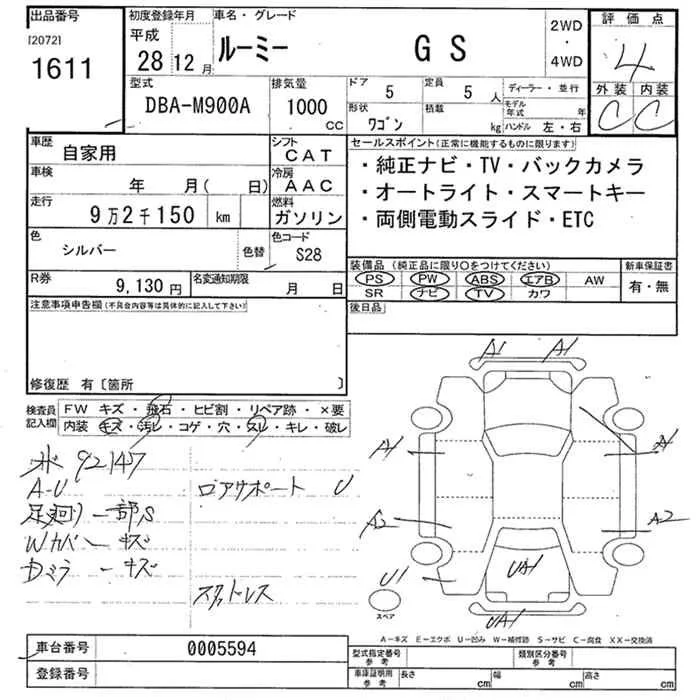 出品番号
[2072]
1611
初度登録年月
平成
28 12月
車名・グレード
ルーミー GS
2WD
・
4WD
評価点
4
外装 内装
C C
型式
DBA-M900A
排気量
1000
CC
ドア 5
定員 5 人
形状 ワゴン
積載 kg
ディーラー・並行
モデル年式 年
ハンドル 左・右
車歴 自家用
シフト CAT
車検 年 月( 日)
冷房 AAC
走行 9万2千150 km
燃料 ガソリン
色 シルバー 色替
色コード S28
R券 9,130円
名変通知期限 月 日
セールスポイント(正常に機能するものに限ります)
・純正ナビ・TV・バックカメラ
・オートライト・スマートキー
・両側電動スライド・ETC
装備品(純正品に限り○をつけてください)
新車保証書
PS PW ABS エアB AW
有・無
SR ナビ TV カワ
後日品
注意事項申告欄(不具合内容等は具体的に記入して下さい)
修復歴 有〔箇所 〕
検査員記入欄
FW キズ・飛石・ヒビ割・リペア跡・×要
内装 キズ・汚レ・コゲ・穴・スレ・キレ・破レ
92147
A-U ロアサポート U
足廻り一部S
Wカバーキズ
Dミラーキズ
スタットレス
A1 A1
A1 A1
A2 A2
U1
UA1
UA1
スペア
A-キズ E-エクボ U-凹み W-補修跡 S-サビ C-腐食 XX-交換済
車台番号 0005594
登録番号
型式指定番号 参考
類別区分番号 参考
車庫証明用 参考
長さ cm 幅 cm 高さ cm